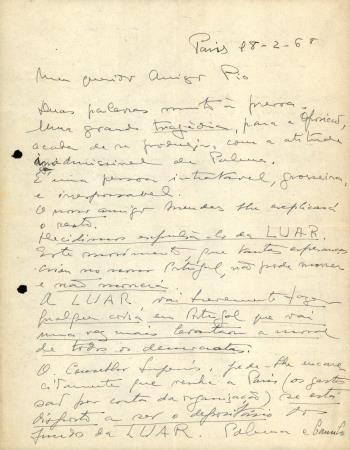 Paris 18-2-68
Meu querido Amigo Pio
Duas palavras muito à pressa.
Uma grande tragédia, para a
acaba de se produzir, com a atitude
inadmissível de Palma.
É uma pessoa intratável, grosseira,
e irresponsável.
O nosso amigo Mendes lhe explicará
o resto.
Decidimos expulsá-lo da LUAR.
Este movimento, que tantas esperanças
criou no nosso Portugal, não pode morrer
e não morrerá.
A LUAR vai brevemente fazer
qualquer coisa em Portugal que vai
uma vez mais levantar a moral
de todos os democratas.
O Conselho Superior, pede-lhe encare-
cidamente que venha a Paris (os gastos
são por conta da organização) se está
disposto a ser o depositário dos
fundos da LUAR. Palma e